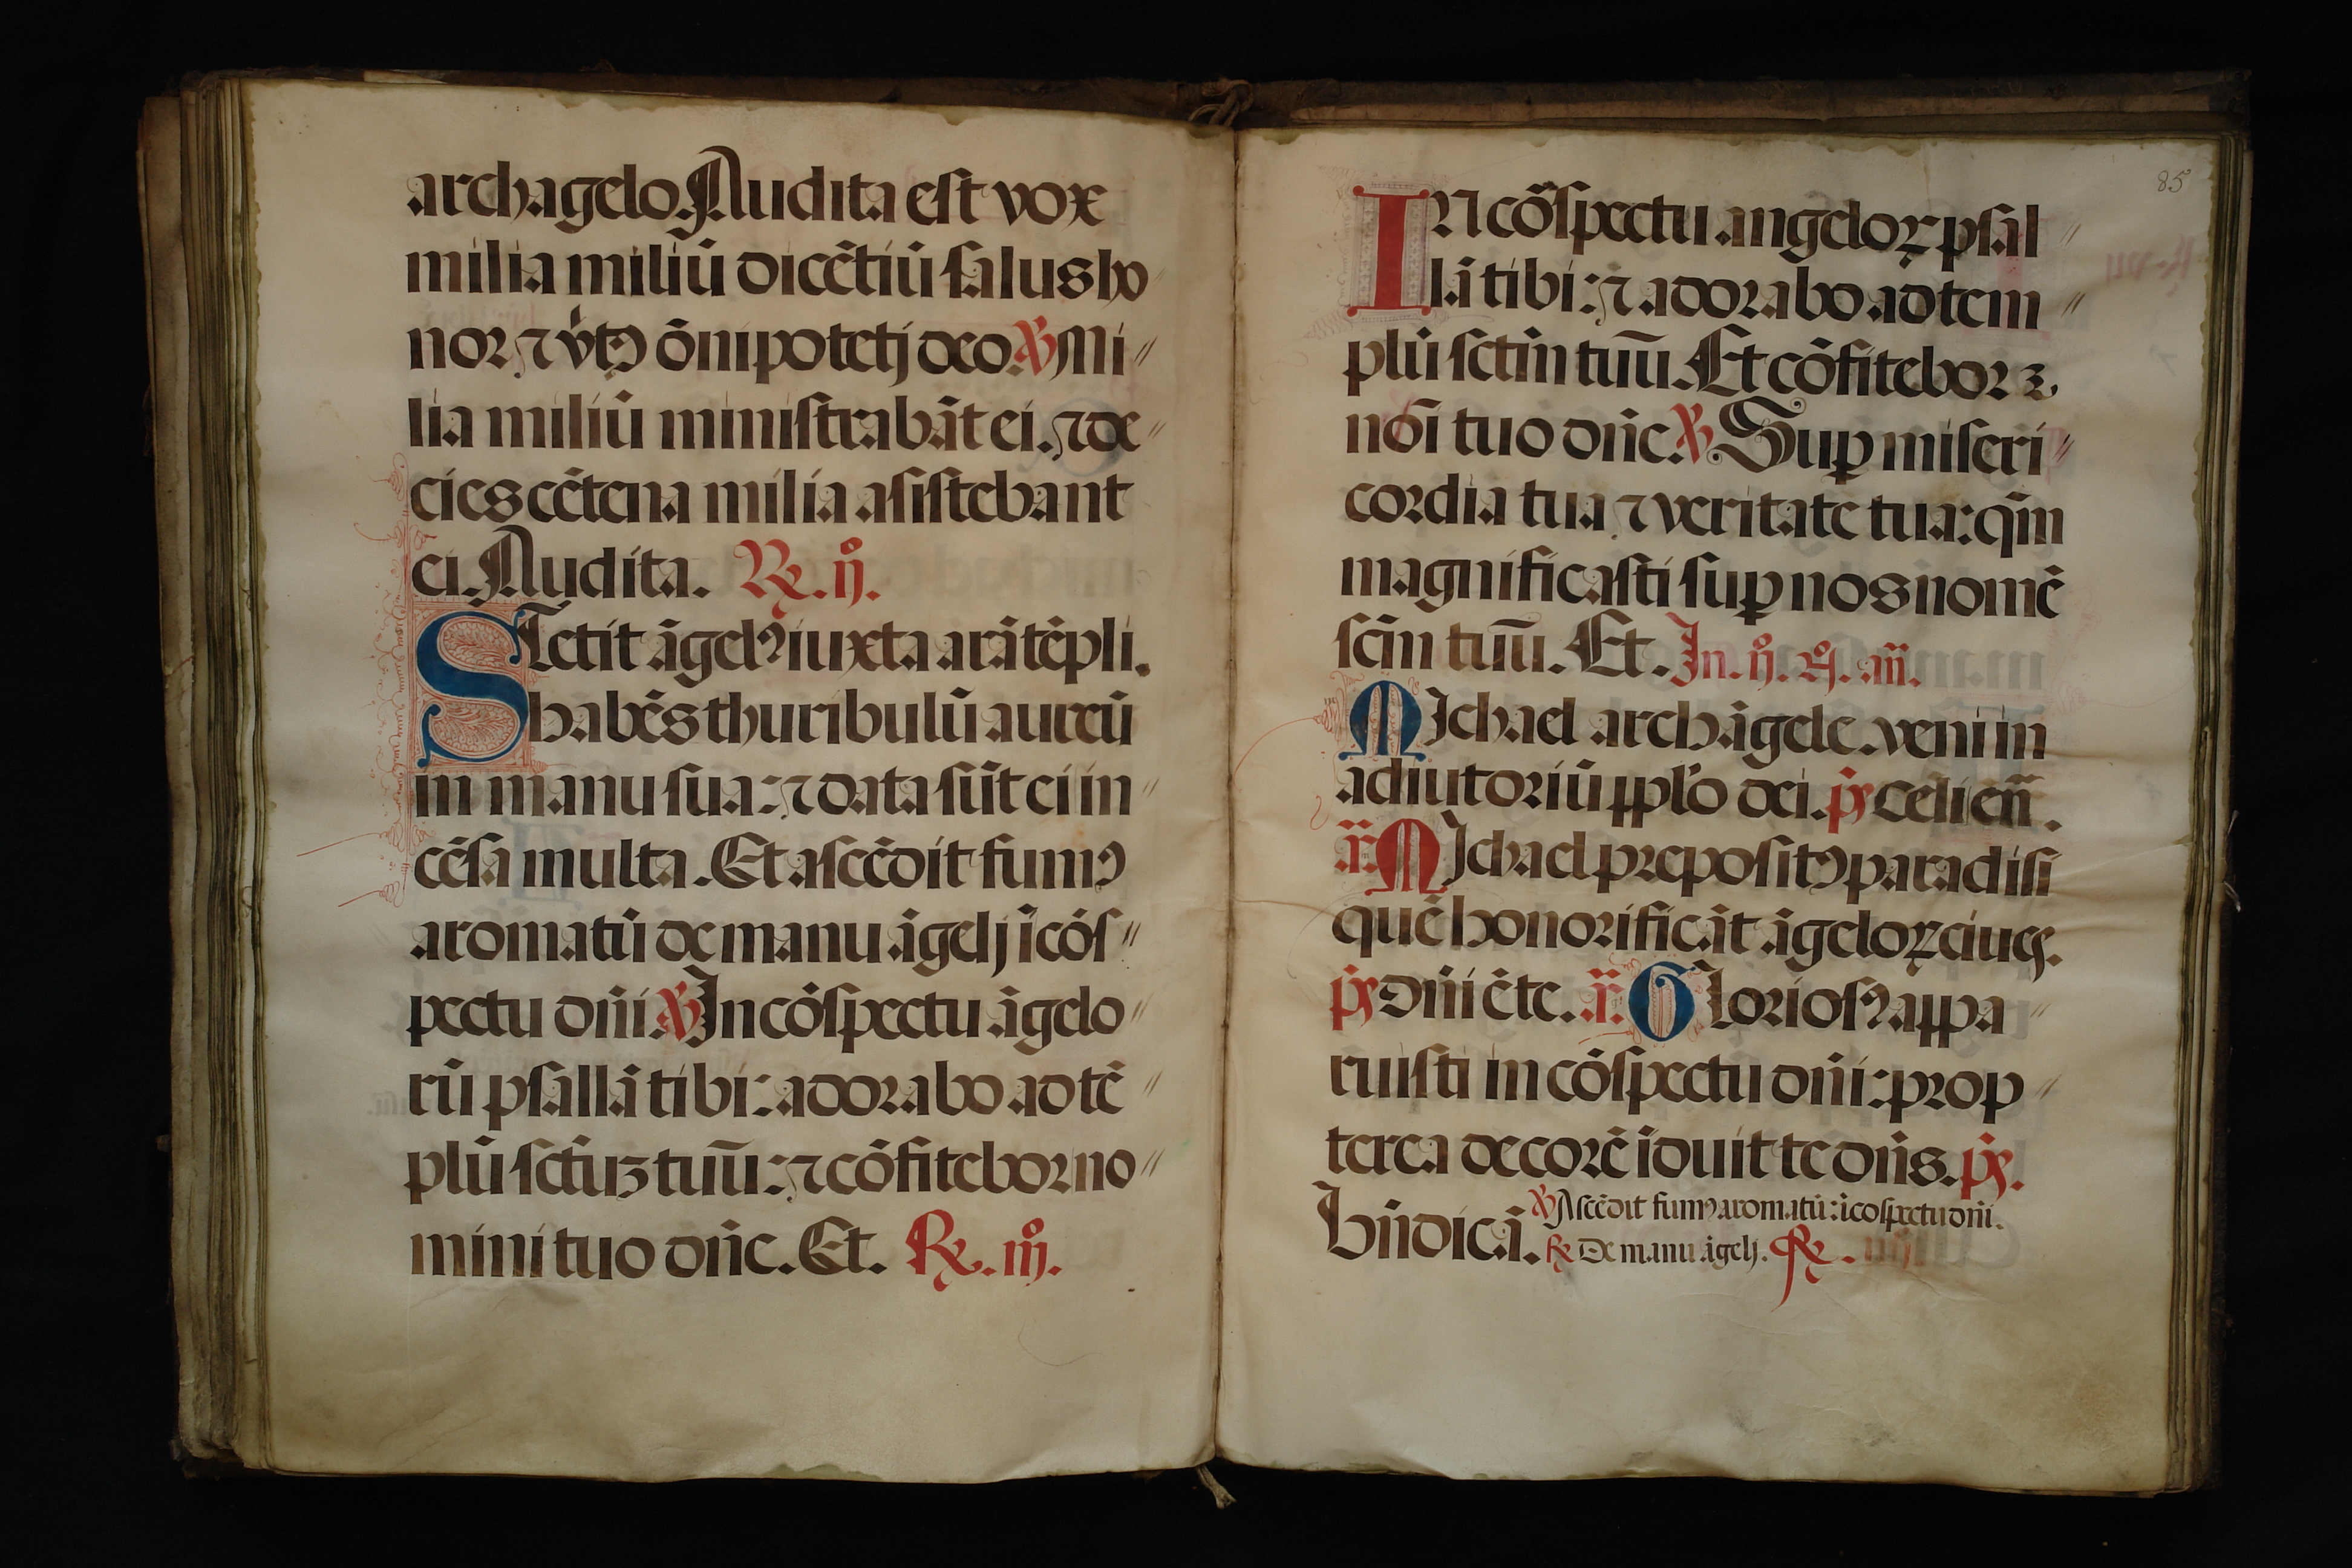 archagelo. Audita est vox
milia miliū dicētiū salus ho
nor ⁊ v̇tꝰ ōnipotētj deo. ℣ Mi〃
lia miliū ministrabāt ei. ⁊ de〃
cies cētena milia asistebant
ei. Audita. ℞. ij̊.
STetit āgelꝰ iuxta arā tēpli.
habēs thuribulū aureū
in manu sua: ⁊ data sūt ei in〃
cēsa multa. Et ascēdit fumꝰ
aromatū de manu āgelj ī cōs〃
pectu dn̄i. ℣ In cōspectu āgelo〃
rū psallā tibi: adorabo ad tē〃
plū sctūꝫ tuū: ⁊ cōfitebor no〃
mini tuo dn̄e. Et. ℞. iij̊.
85
IN cōspectu angeloꝝ psal〃
lā tibi: ⁊ adorabo ad tem〃
plū sctm̄ tuū. Et cōfitebor ꝫ.
nōi tuo dn̄e. ℣ Suꝑ miseri〃
cordia tua ⁊ veritate tua: qm̄
magnificasti suꝑ nos nomē
scm̄ tuū. Et. In. ij̊. n̊. añ.
MIchael archāgele. veni in
adiutoriū pplo dei. ps Celi en̄.
añ. MIchael prepositꝰ paradisi
quē honorificāt āgeloꝝ ciues.
ps Dn̄i ē te. añ. GLoriosꝰ appa〃
ruisti in cōspectu dn̄i: prop〃
terea decorē īduit te dn̄s. ps.
Bn̄dic ā.
℣ Ascēdit fumꝰ aromatū: ī cospectu dn̄i.
℞ De manu āgelj. ℞. iiij̊